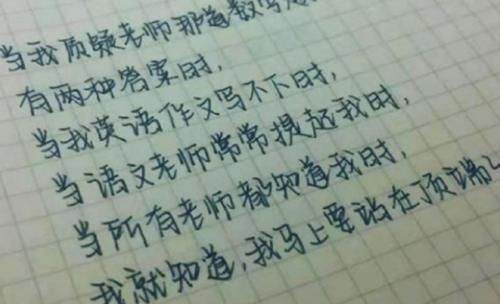 当我质疑老师那道数学
有两种答案时,
当我英语作文写不下时,
当语文老师常常提起我时,
当所有老师都知道我时,
我就知道,我马上要站在顶端